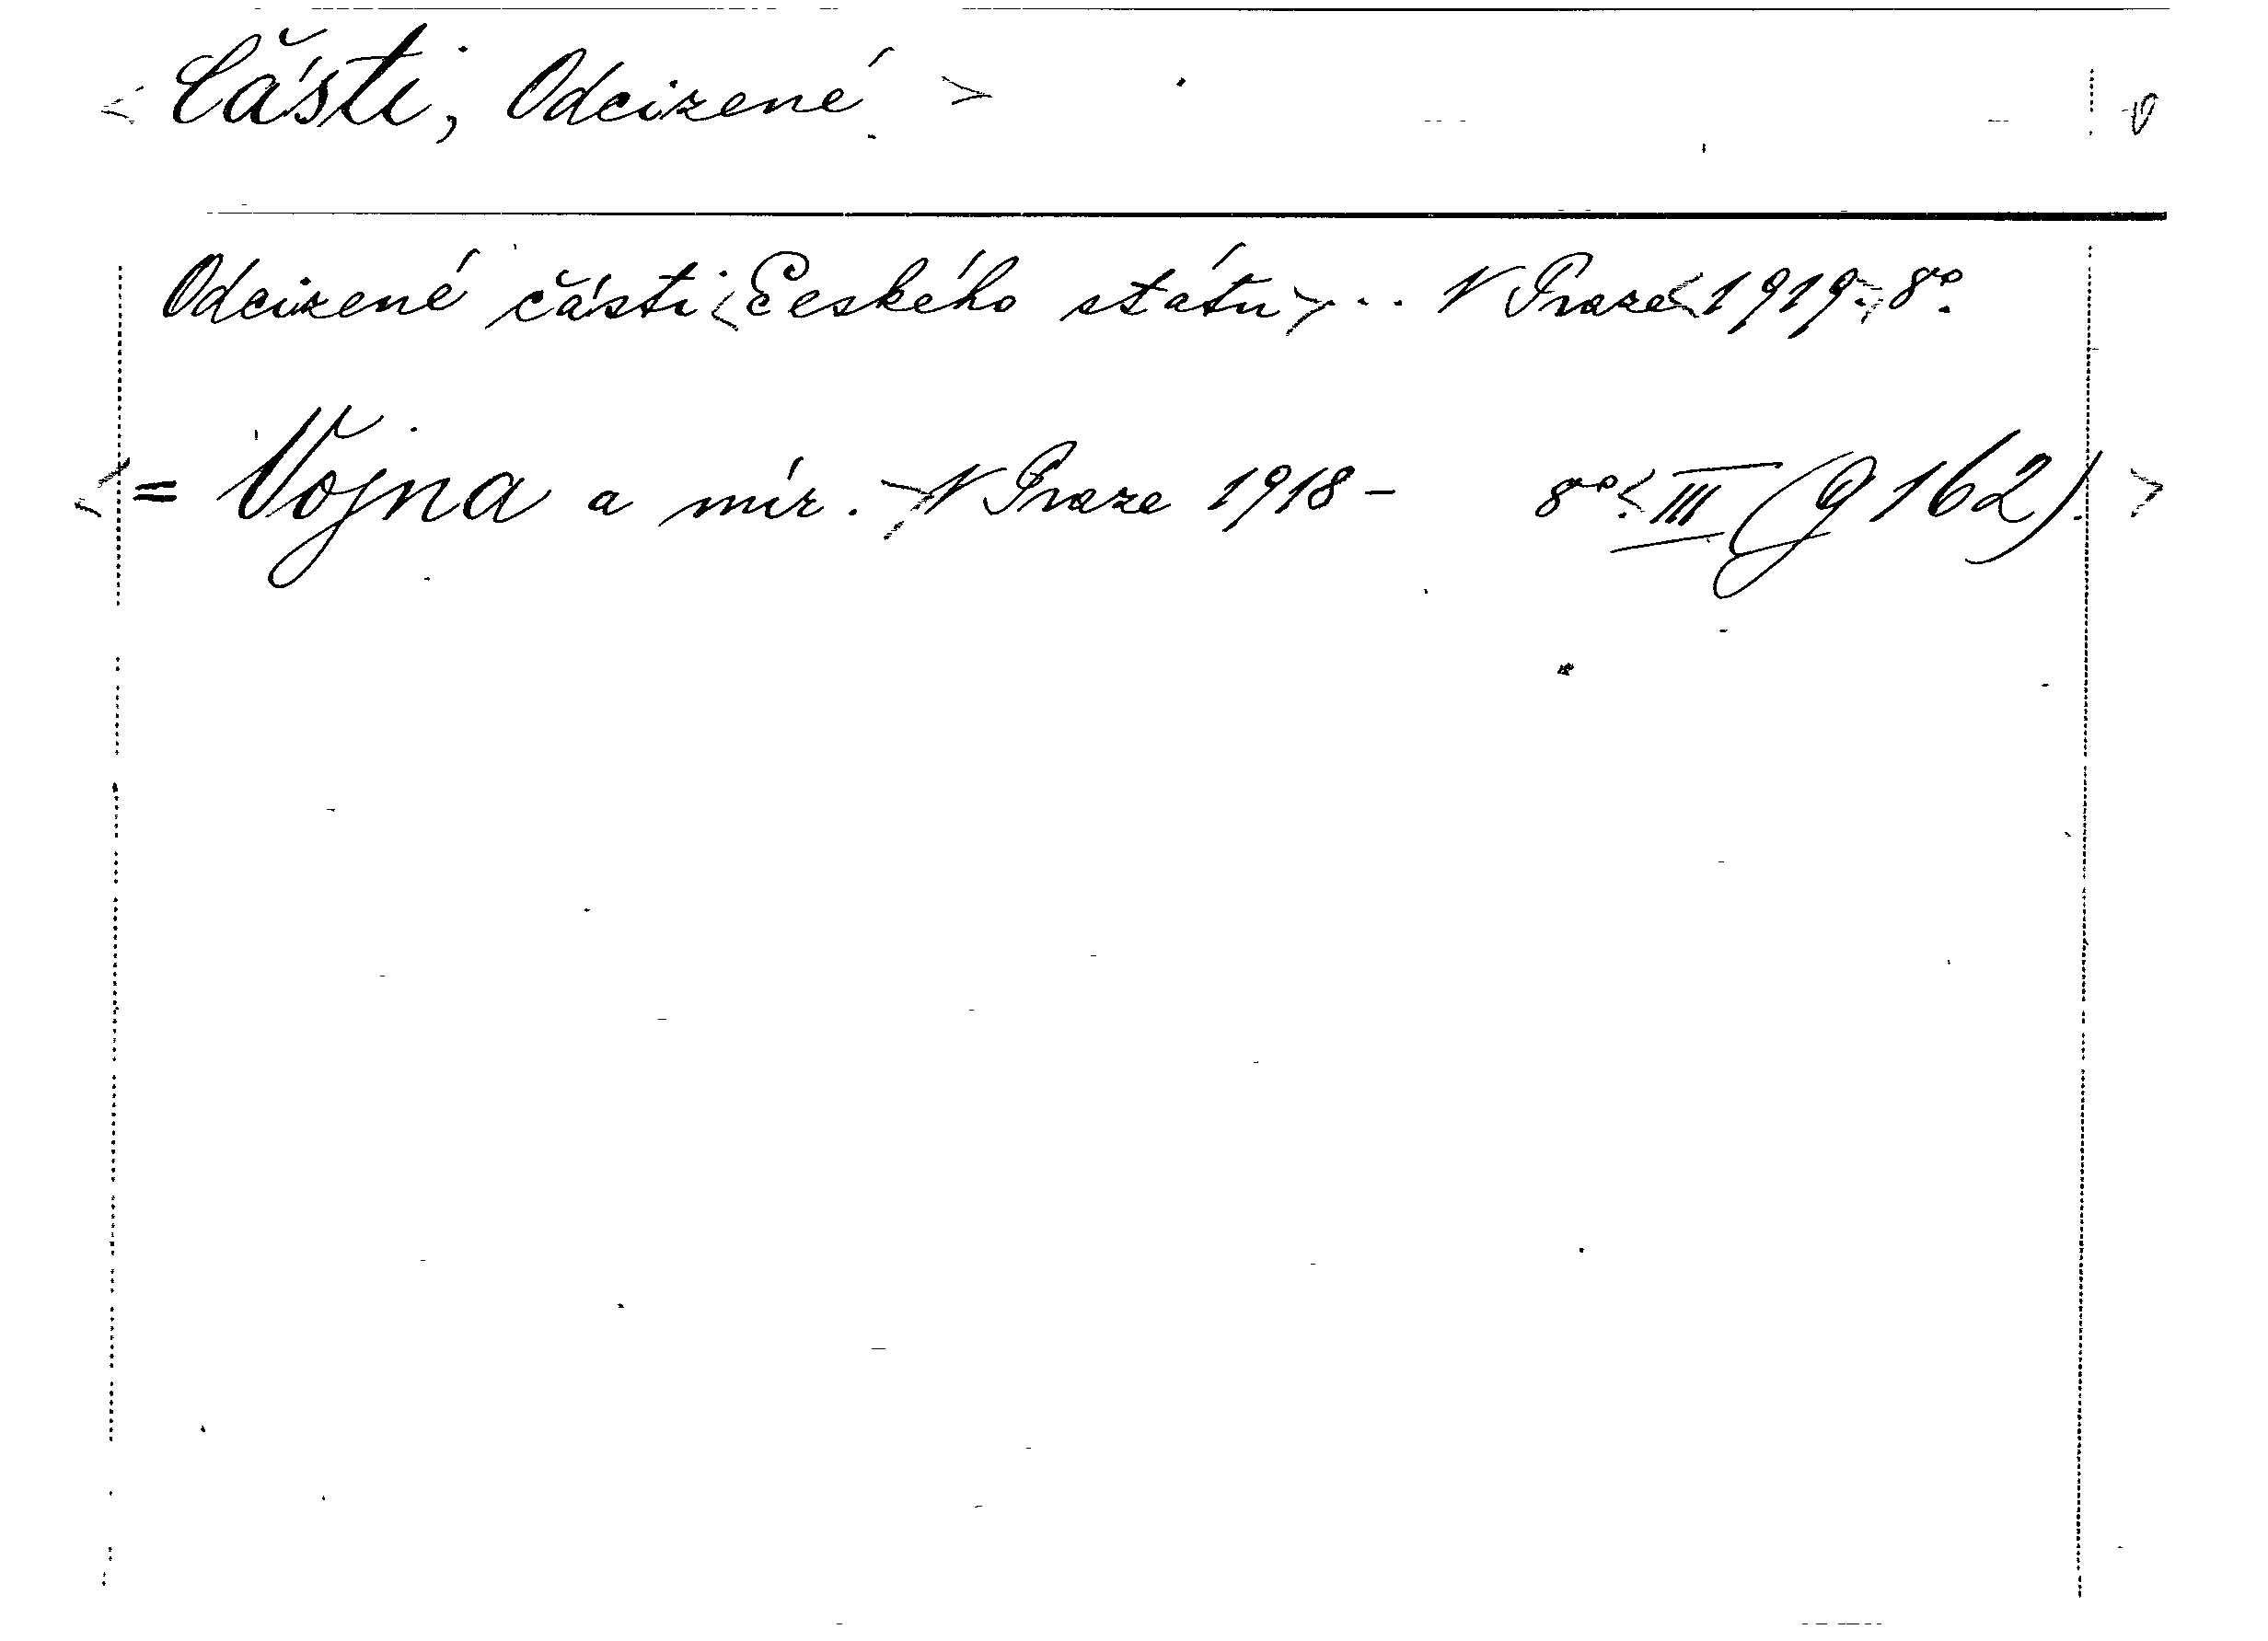 < Části, Odcizené >
Odcizené části <Českého státu> ... V Praze <1919.> 8°.
<= Vojna a mír. > V Praze 1918 - 8°. < III (9 162). >